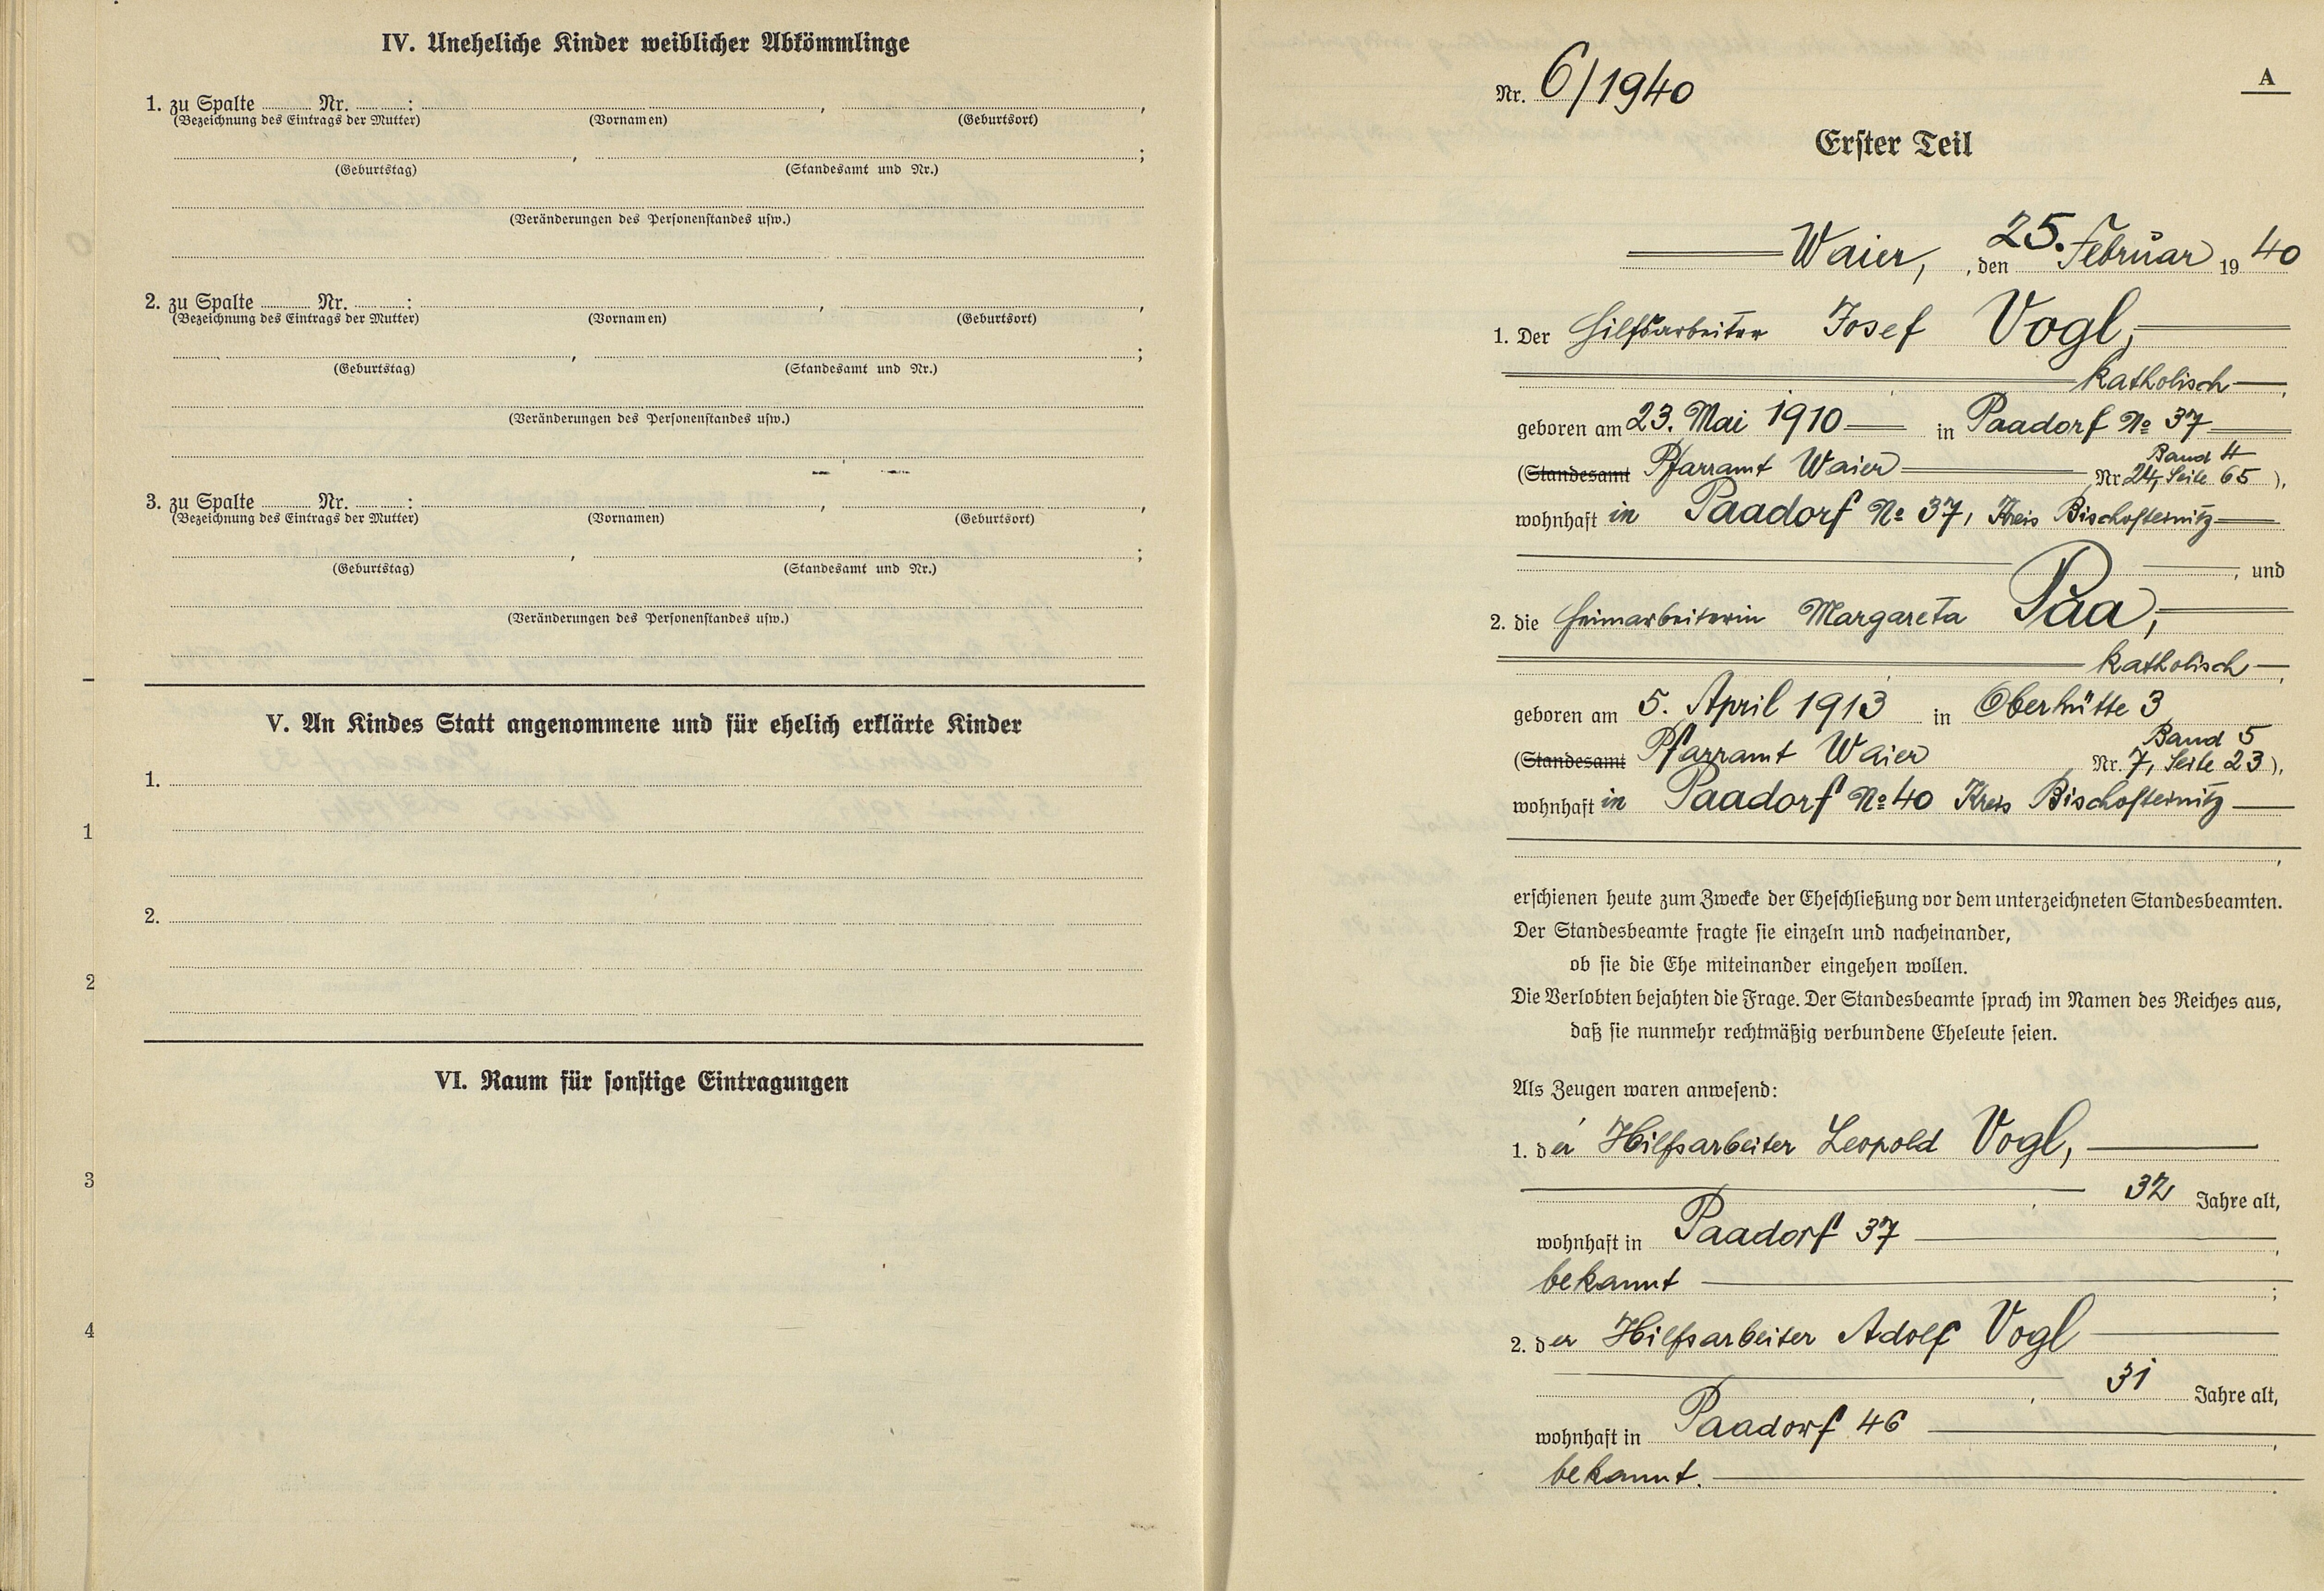 IV. Uneheliche Kinder weiblicher Abkömmlinge
1. zu Spalte ........ Nr. ........: ........, ........,
(Bezeichnung des Eintrags der Mutter) (Vornamen) (Geburtsort)
........, ........;
(Geburtstag) (Standesamt und Nr.)
(Veränderungen des Personenstandes usw.)
2. zu Spalte ........ Nr. ........: ........, ........,
(Bezeichnung des Eintrags der Mutter) (Vornamen) (Geburtsort)
........, ........;
(Geburtstag) (Standesamt und Nr.)
(Veränderungen des Personenstandes usw.)
3. zu Spalte ........ Nr. ........: ........, ........,
(Bezeichnung des Eintrags der Mutter) (Vornamen) (Geburtsort)
........, ........;
(Geburtstag) (Standesamt und Nr.)
(Veränderungen des Personenstandes usw.)
V. An Kindes Statt angenommene und für ehelich erklärte Kinder
1.
1
2.
2
VI. Raum für sonstige Eintragungen
3
4
A
Nr. 6/1940
Erster Teil
Waier, , den 25. Februar 19 40
1. Der Hilfsarbeiter Josef Vogl,
katholisch
geboren am 23. Mai 1910 in Paadorf № 37
Band 4
(Standesamt Pfarramt Waier Nr. 24, Seite 65 ),
wohnhaft in Paadorf № 37, Kreis Bischofteinitz
, und
2. die Heimarbeiterin Margareta Paa,
katholisch
geboren am 5. April 1913 in Oberhütte 3
Band 5
(Standesamt Pfarramt Waier Nr. 7, Seite 23 ),
wohnhaft in Paadorf № 40 Kreis Bischofteinitz
erschienen heute zum Zwecke der Eheschließung vor dem unterzeichneten Standesbeamten.
Der Standesbeamte fragte sie einzeln und nacheinander,
ob sie die Ehe miteinander eingehen wollen.
Die Verlobten bejahten die Frage. Der Standesbeamte sprach im Namen des Reiches aus,
daß sie nunmehr rechtmäßig verbundene Eheleute seien.
Als Zeugen waren anwesend:
1. der Hilfsarbeiter Leopold Vogl,
, 32 Jahre alt,
wohnhaft in Paadorf 37 ,
bekannt ;
2. der Hilfsarbeiter Adolf Vogl
, 31 Jahre alt,
wohnhaft in Paadorf 46 ,
bekannt.